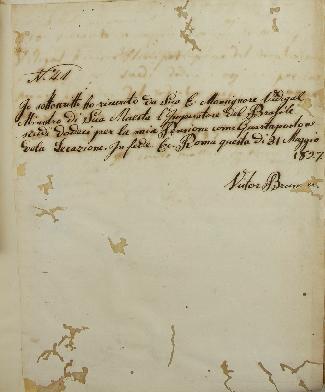 N. 41
Io sottoscritto ho ricevuto da Sua E. Monsignore Vidigal
Ministro di Sua Maestà l'Imperatore del Brasile
scudi dodici per la mia Pensione come Guardaportone
della Legazione. In fede &c. Roma questo dì 31 Maggio
1827
Victor